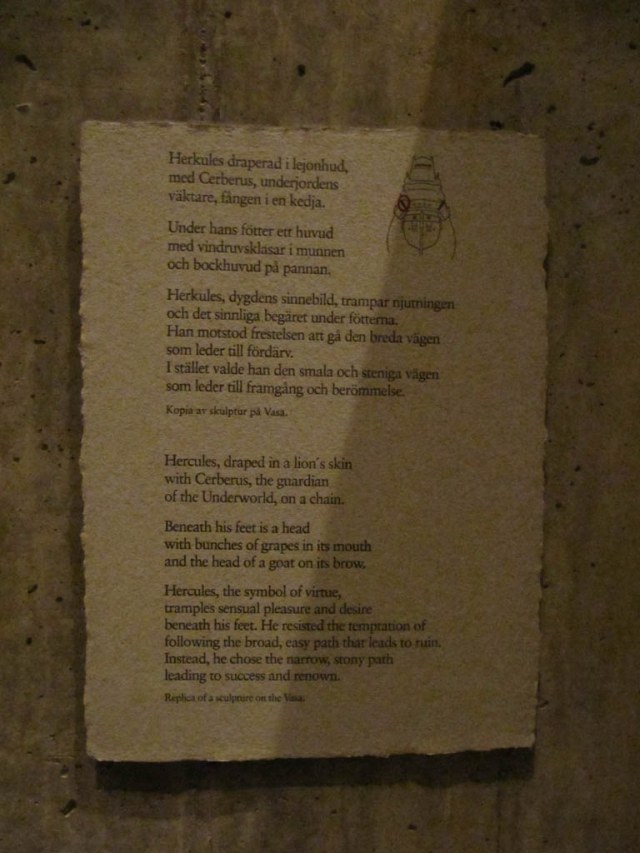 Herkules draperad i lejonhud,
med Cerberus, underjordens
väktare, fången i en kedja.
Under hans fötter ett huvud
med vindruvsklasar i munnen
och bockhuvud på pannan.
Herkules, dygdens sinnebild, trampar njutningen
och det sinnliga begäret under fötterna.
Han motstod frestelsen att gå den breda vägen
som leder till fördärv.
I stället valde han den smala och steniga vägen
som leder till framgång och berömmelse.
Kopia av skulptur på Vasa.
Hercules, draped in a lion´s skin
with Cerberus, the guardian
of the Underworld, on a chain.
Beneath his feet is a head
with bunches of grapes in its mouth
and the head of a goat on its brow.
Hercules, the symbol of virtue,
tramples sensual pleasure and desire
beneath his feet. He resisted the temptation of
following the broad, easy path that leads to ruin.
Instead, he chose the narrow, stony path
leading to success and renown.
Replica of a sculpture on the Vasa.